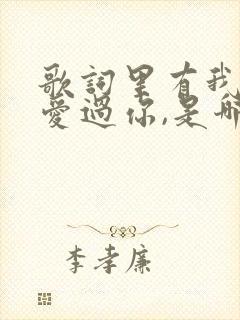 歌詞里有我
愛過你,是哪
李孝廉